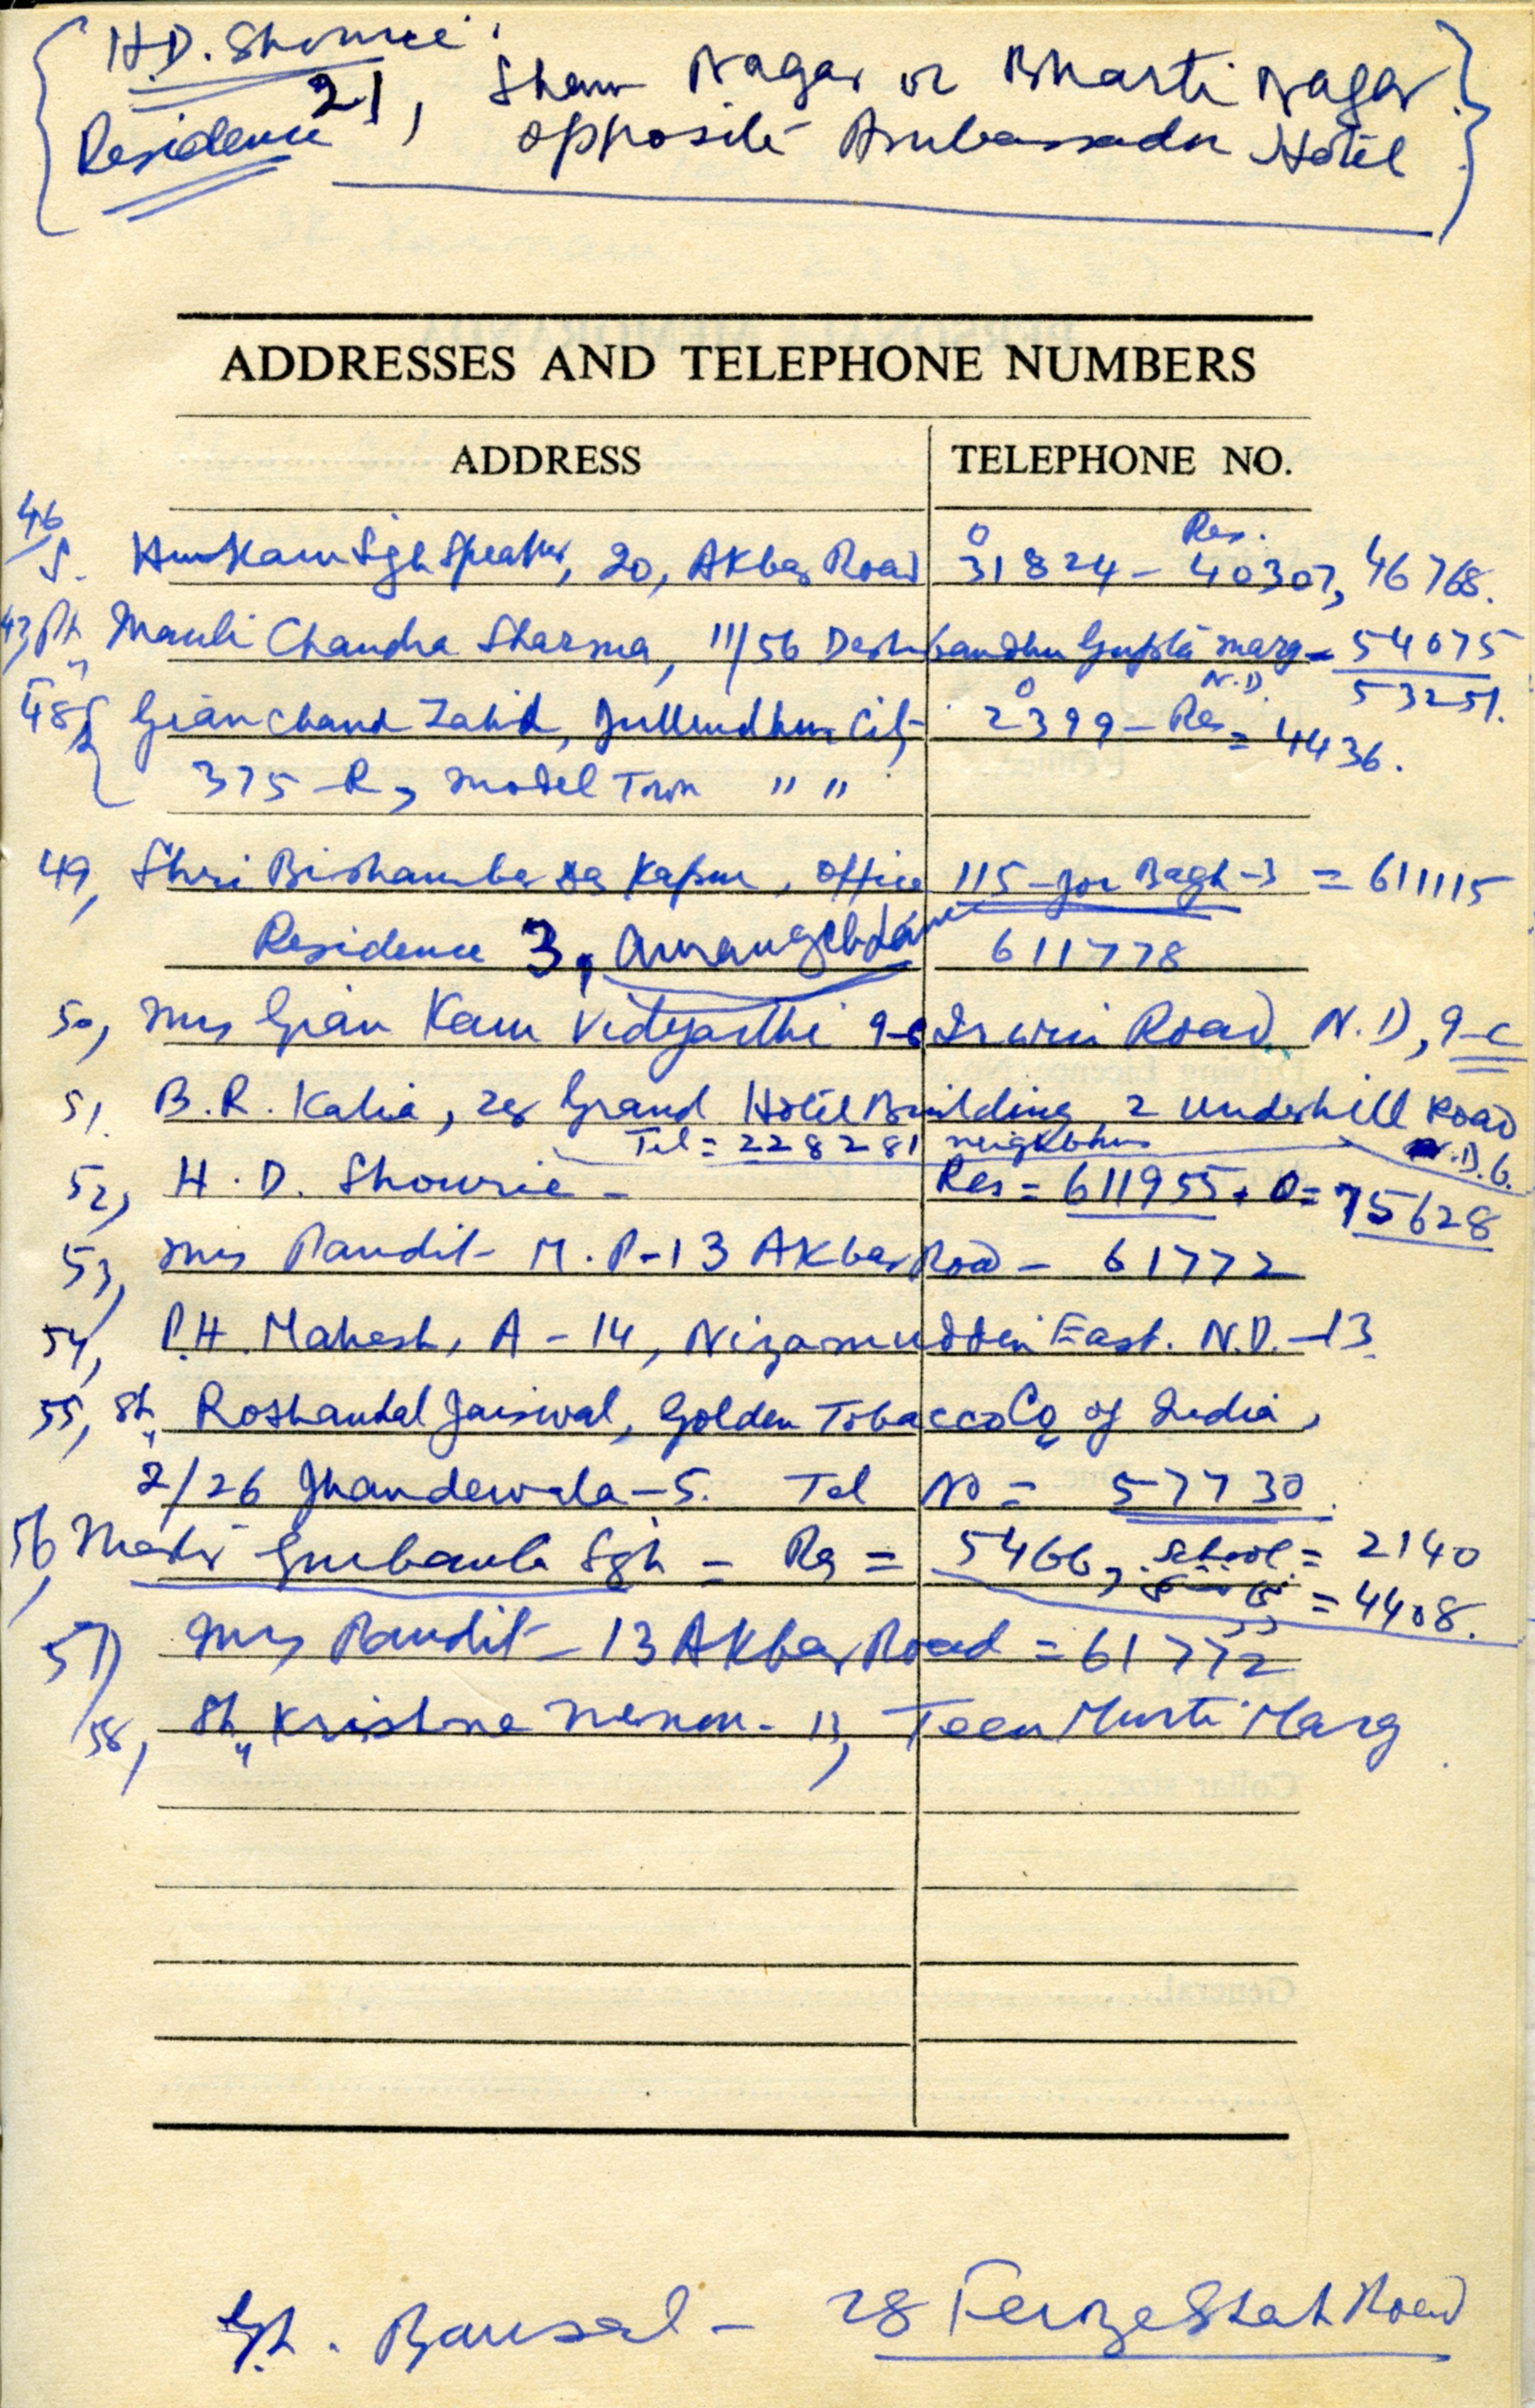 H.D. Shourie
Residence 21, Sham Nagar or Bharti Nagar
opposite Ambassador Hotel
ADDRESSES AND TELEPHONE NUMBERS
ADDRESS TELEPHONE NO.
46 S. Hukam Sgh Speaker, 20, Akbar Road O 31824 - Res. 40307, 46768.
Pt. Mauli Chandra Sharma, 11/56 Deshbandhu Gupta Marg - 54075
N.D. 53251.
48, Gian Chand Zahid, Jullundhur City O 2399 - Res = 4436.
375-R, Model Town " "
49, Shri Bishamber Das Kapur, Office 115-Jor Bagh-3 = 611115
Residence 3, Aurangzeb Lane 611778
50, Mrs Gian Kaur Vidyarthi 9-C Irwin Road, N.D, 9-C
51. B.R. Kalia, 28 Grand Hotel Building 2 Underhill Road
Tel = 228281 neighbour N.D.6.
52, H. D. Shourie - Res = 611955, O = 75628
53, Mrs Pandit M.P-13 Akbar Road - 61772
54, P.H. Mahesh, A-14, Nizamuddin East. N.D.-13
55, Sh. Roshanlal Jaiswal, Golden Tobacco Co of India,
2/26 Jhandewala-5. Tel No = 57730.
56, Gurbanta Sgh - Res = 5466, School = 2140
= 4408.
57) Mrs Pandit - 13 Akbar Road = 61772
58, Sh. Krishna Menon - 13, Teen Murti Marg
Sh. Bansal - 28 Feroze Shah Road